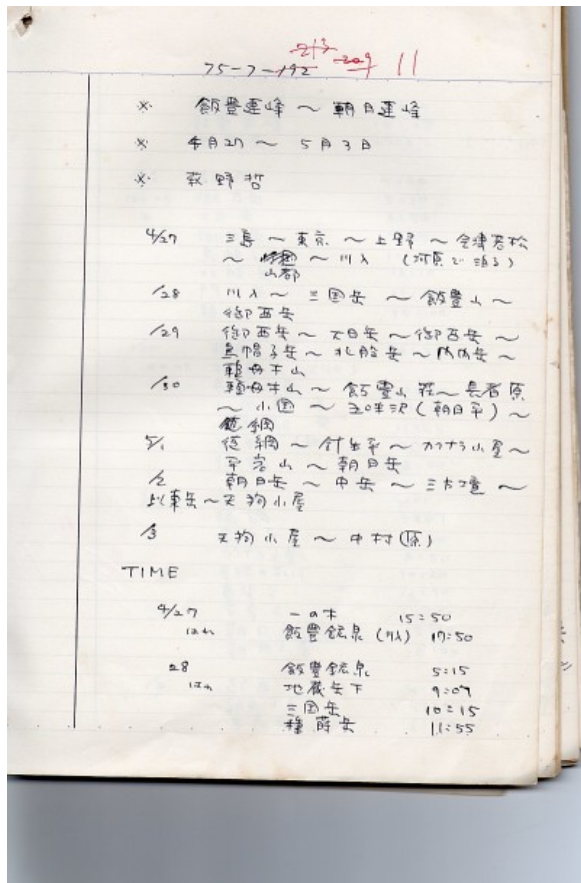 213 209 11
75-7-192
※ 飯豊連峰 ～ 朝日連峰
※ 4月27 ～ 5月3日
※ 荻野哲
4/27 三島 ～ 東京 ～ 上野 ～ 会津若松
～ 山都 ～ 川入 (河原で泊る)
/28 川入 ～ 三国岳 ～ 飯豊山 ～
御西岳
/29 御西岳 ～ 大日岳 ～ 御西岳 ～
烏帽子岳 ～ 北股岳 ～ 門内岳 ～
頼母木山
/30 頼母木山 ～ 飯豊山荘 ～ 長者原
～ 小国 ～ 五味沢 (朝日平) ～
徳網
5/1 徳網 ～ 針生平 ～ カクナラ小屋 ～
平岩山 ～ 朝日岳
/2 朝日岳 ～ 中岳 ～ 三方境 ～
以東岳 ～ 天狗小屋
/3 天狗小屋 ～ 中村 (原)
TIME
4/27 一の木 15:50
はれ 飯豊鉱泉 (川入) 17:50
28 飯豊鉱泉 5:15
はれ 地蔵岳下 9:09
三国岳 10:15
種蒔岳 11:55